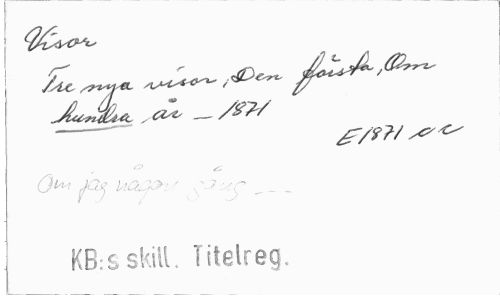 Visor
Tre nya visor, Den första, Om
hundra år – 1871
E1871
Om jag någon gång ---
KB:s skill. Titelreg.